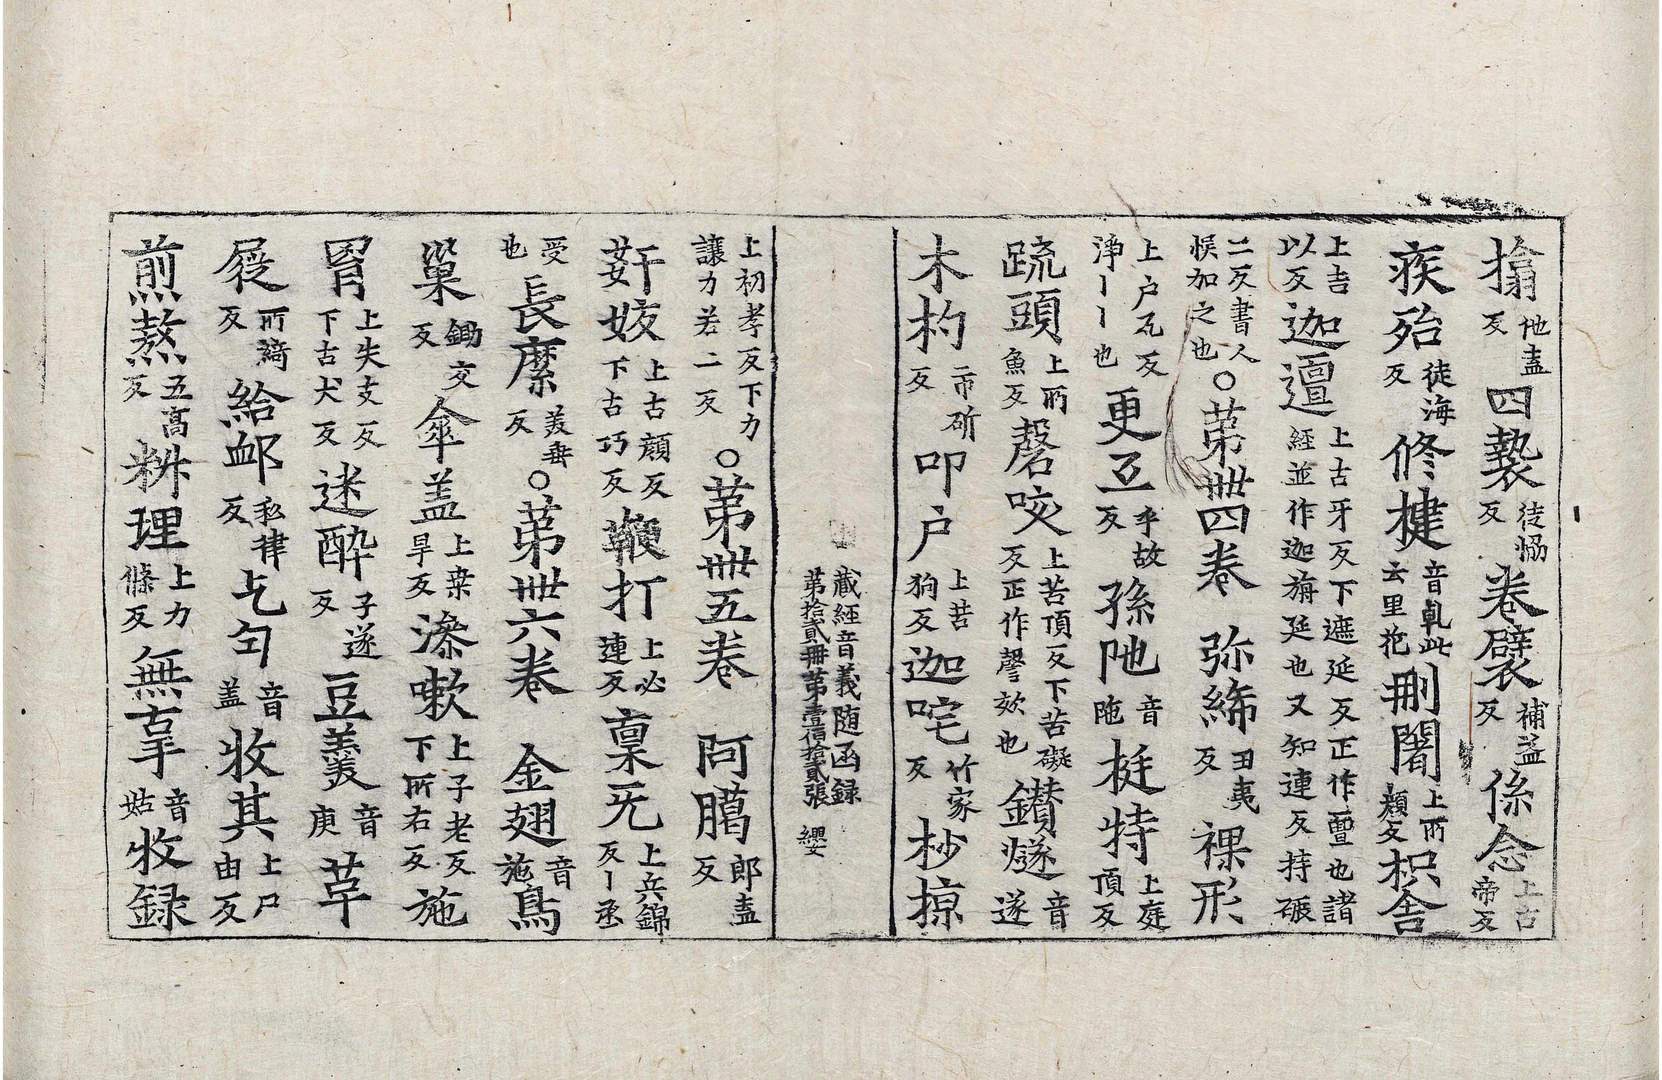 搚他盍反四褺徒恊反卷襞補益反係念上古帝反
疾殆徒海反修揵音乹此云里抱刪闍上所頞反枳舍
上吉以反迦邅上古牙反下遮延反正作䨥也諸經並作迦旃延也又知連反持碾
二反書人悮加之也○苐卌四卷 弥絺丑夷反裸形
上户瓦反淨丨丨也更互乎故反孫陁音陁挺特上庭頂反
䟽頭上所魚反磬咳上苦頂反下苦礙反正作謦欬也鑚燧音遂
木杓市斫反叩户上苦狗反迦咤竹家反杪掠
藏經音義随函録
第拾貳冊第壹伯拾貳張 纓
上初孝反下力讓力若二反○苐卌五卷 阿䐛郎盍反
姧姣上古顔反下古巧反鞭打上必連反禀旡上兵錦反丨丞
受也長縻美垂反○苐卌六卷 金翅音施鳥
巢鋤交反傘盖上桒旱反㵕嗽上子老反下所右反施
罥上失支反下古犬反迷酔子遂反豆羹音庚草
屐所𦂶反給䘏私律反乞匂音盖收其上尸由反
煎熬五高反㪵理上力條反無辜音姑收録